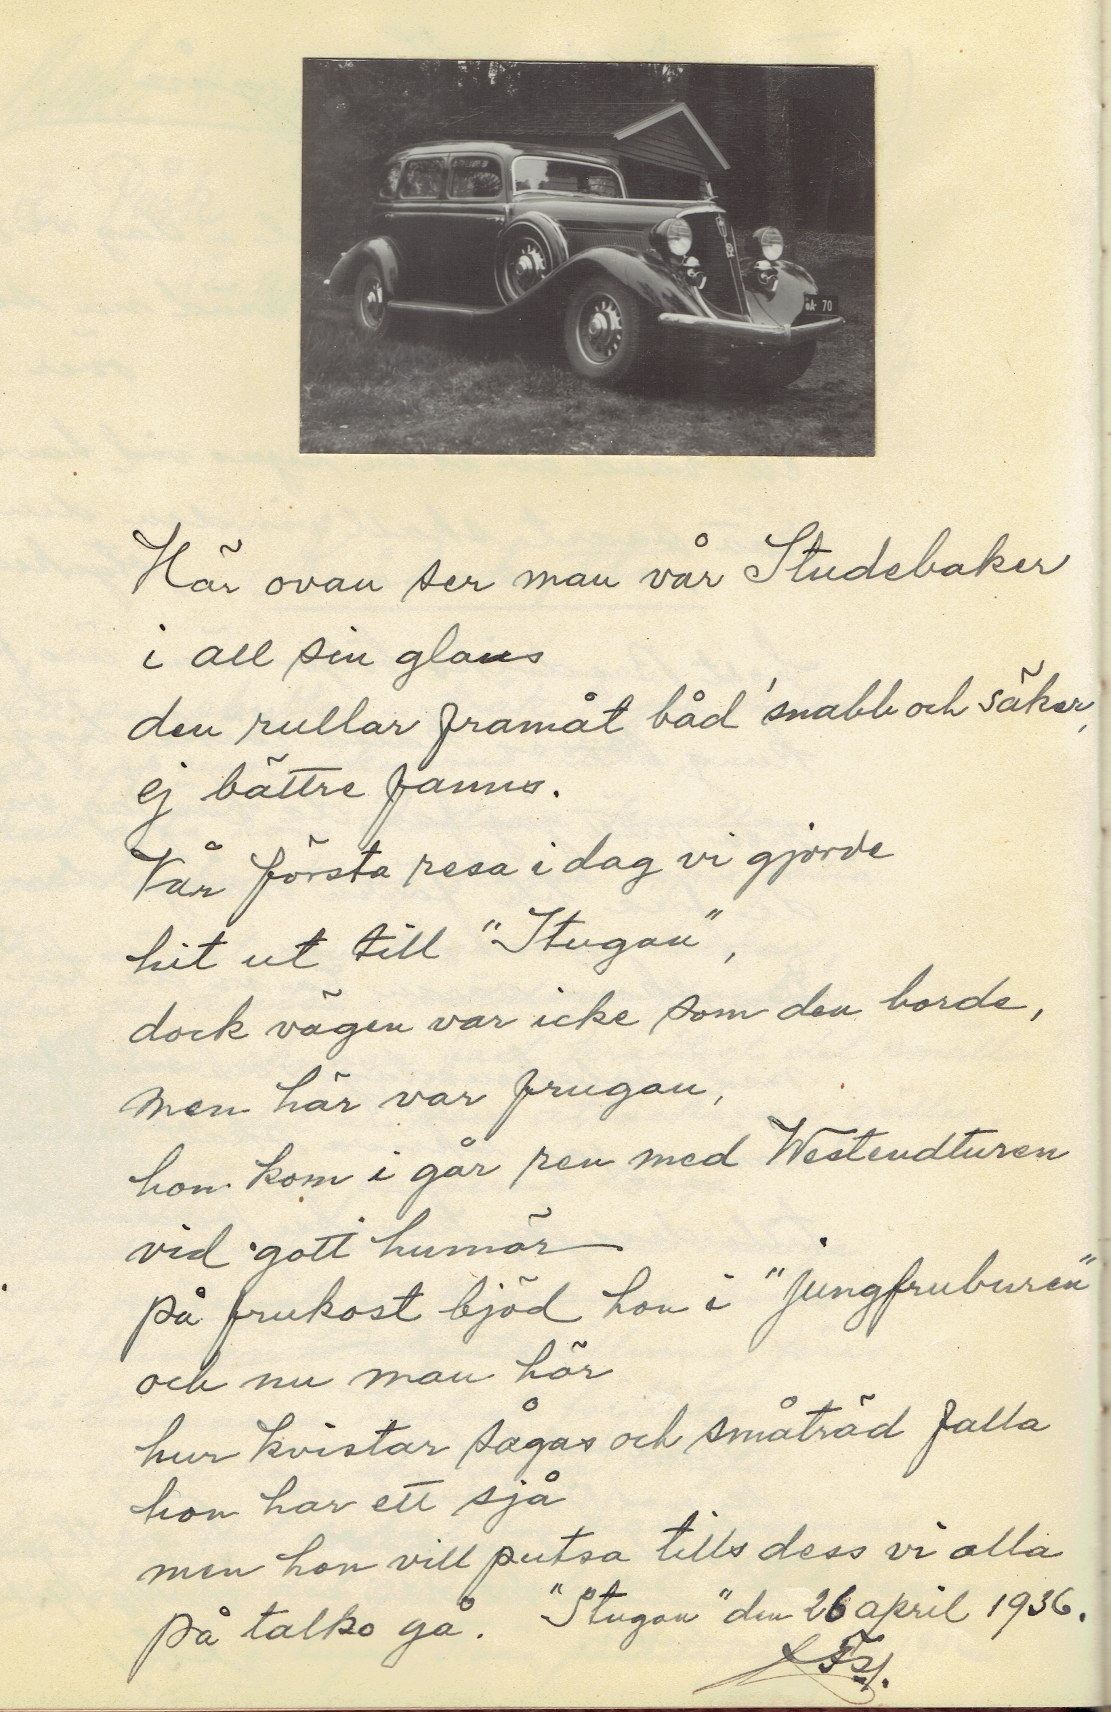 A 70
Här ovan ser man vår Studebaker
i all sin glans
den rullar framåt båd' snabb och säker,
ej bättre fanns.
Vår första resa i dag vi gjorde
hit ut till "Stugan",
dock vägen var icke som den borde,
men här var frugan,
hon kom i går ren med Westendturen
vid gott humör
på frukost bjöd hon i "jungfruburen"
och nu man hör
hur kvistar sågas och småträd falla
hon har ett sjå
men hon vill putsa tills dess vi alla
på talko gå. "Stugan" den 26 april 1936.